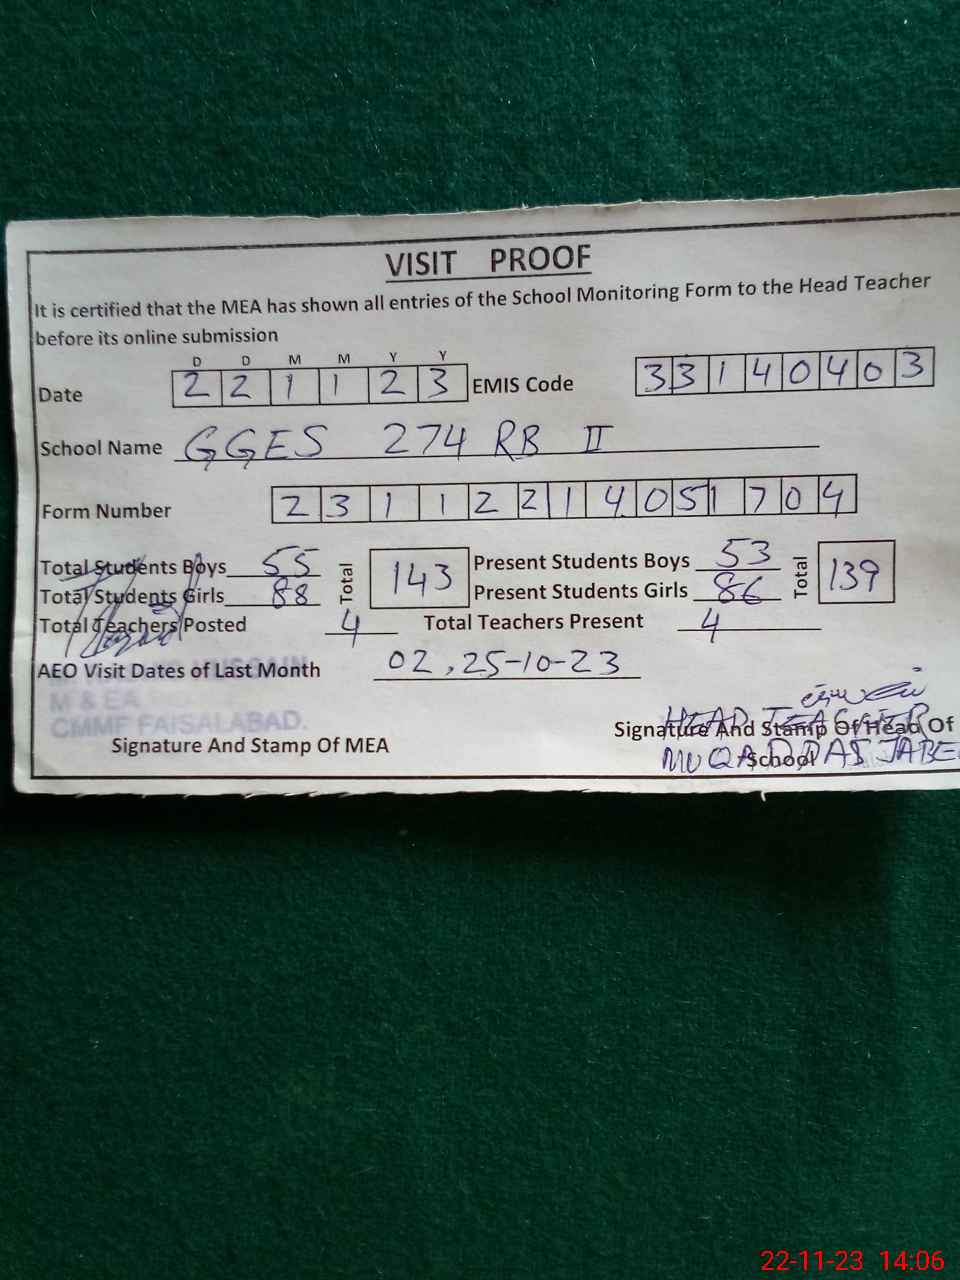 VISIT PROOF
It is certified that the MEA has shown all entries of the School Monitoring Form to the Head Teacher
before its online submission
D D M M Y Y
Date 2 2 1 1 2 3 EMIS Code 3 3 1 4 0 4 0 3
School Name GGES 274 RB II
Form Number 2 3 1 1 2 2 1 4 0 5 1 7 0 4
Total Students Boys 55 Total 143 Present Students Boys 53 Total 139
Total Students Girls 88 Present Students Girls 86
Total Teachers Posted 4 Total Teachers Present 4
AEO Visit Dates of Last Month 02, 25-10-23
M & EA
CMMF FAISALABAD.
Signature And Stamp Of MEA
Signature And Stamp Of Head Of
School
HEAD TEACHER
MUQADDAS JABE
22-11-23 14:06